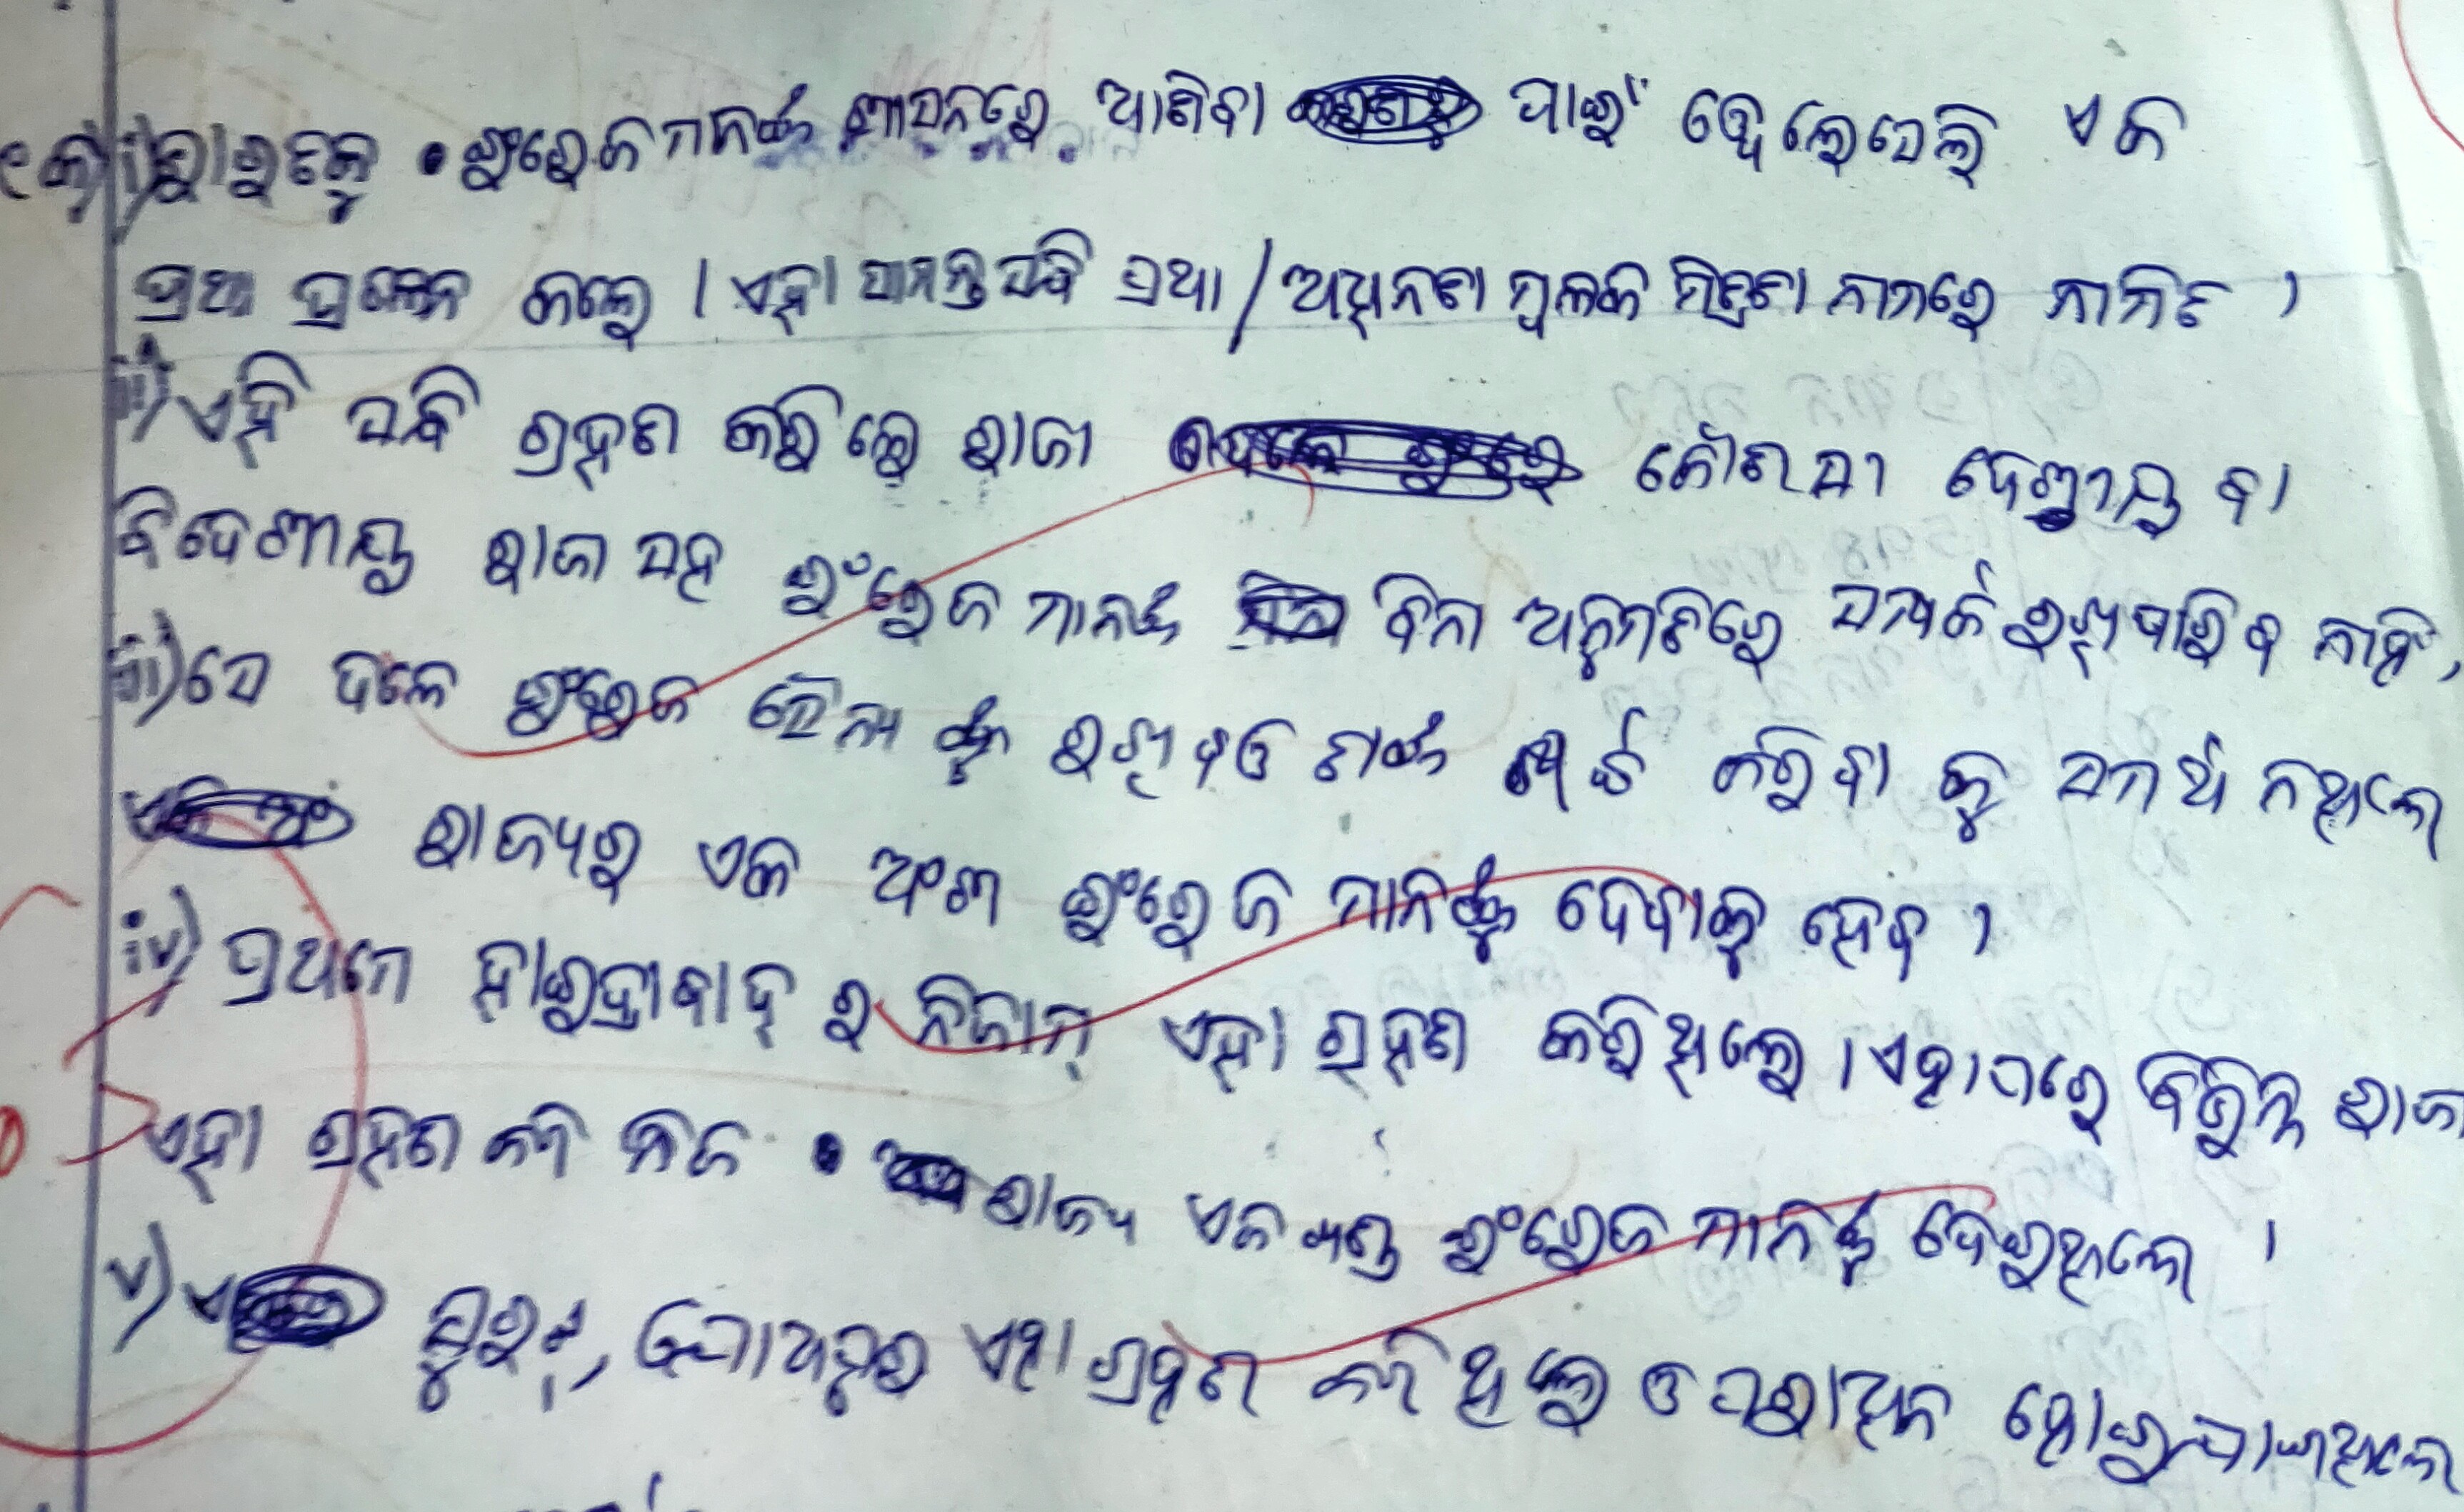 କ) i) ଭାରତକୁ ଇଂରେଜମାନଙ୍କ ଶାସନରେ ଆଣିବା ପାଇଁ ୱେଲେସେଲି ଏକ
ପ୍ରଥା ପ୍ରଚଳନ କଲେ । ଏହା ସାମନ୍ତ ସନ୍ଧି ପ୍ରଥା / ଅଧିନତା ମୂଳକ ମିତ୍ରତା ନାମରେ ନାମିତ ।
ii) ଏହି ସନ୍ଧି ଗ୍ରହଣ କରିଲେ ରାଜା କୌଣସୀ ଦେଶୀୟ ବା
ବିଦେଶୀୟ ରାଜା ସହ ଇଂରେଜ ମାନଙ୍କ ବିନା ଅନୁମତିରେ ସମ୍ପର୍କ ରଖିପାରିବ ନାହିଁ,
iii) ସେ ଦଳେ ଇଂରେଜ ସୈନ୍ୟ ଙ୍କୁ ରଖିବ ଓ ତାଙ୍କ ଖର୍ଚ୍ଚ କରିବା କୁ ସମର୍ଥ ନଥିଲେ
ରାଜ୍ୟର ଏକ ଅଂଶ ଇଂରେଜ ମାନଙ୍କୁ ଦେବାକୁ ହେବ ।
iv) ପ୍ରଥମେ ହାଇଦ୍ରାବାଦ୍ ର ନିଜାମ୍ ଏହା ଗ୍ରହଣ କରିଥିଲେ । ଏହାପରେ ବିଭିନ୍ନ ରାଜା
ଏହା ଗ୍ରହଣ କରି ନିଜ ରାଜ୍ୟ ଏକ ଖଣ୍ଡ ଇଂରେଜ ମାନଙ୍କୁ ଦେଇଥିଲେ ।
v) ସୁରଟ୍, ଯୋଧପୁର ଏହା ଗ୍ରହଣ କରି ଥିଲେ ଓ ପରାଧିନ ହୋଇଯାଇଥିଲେ